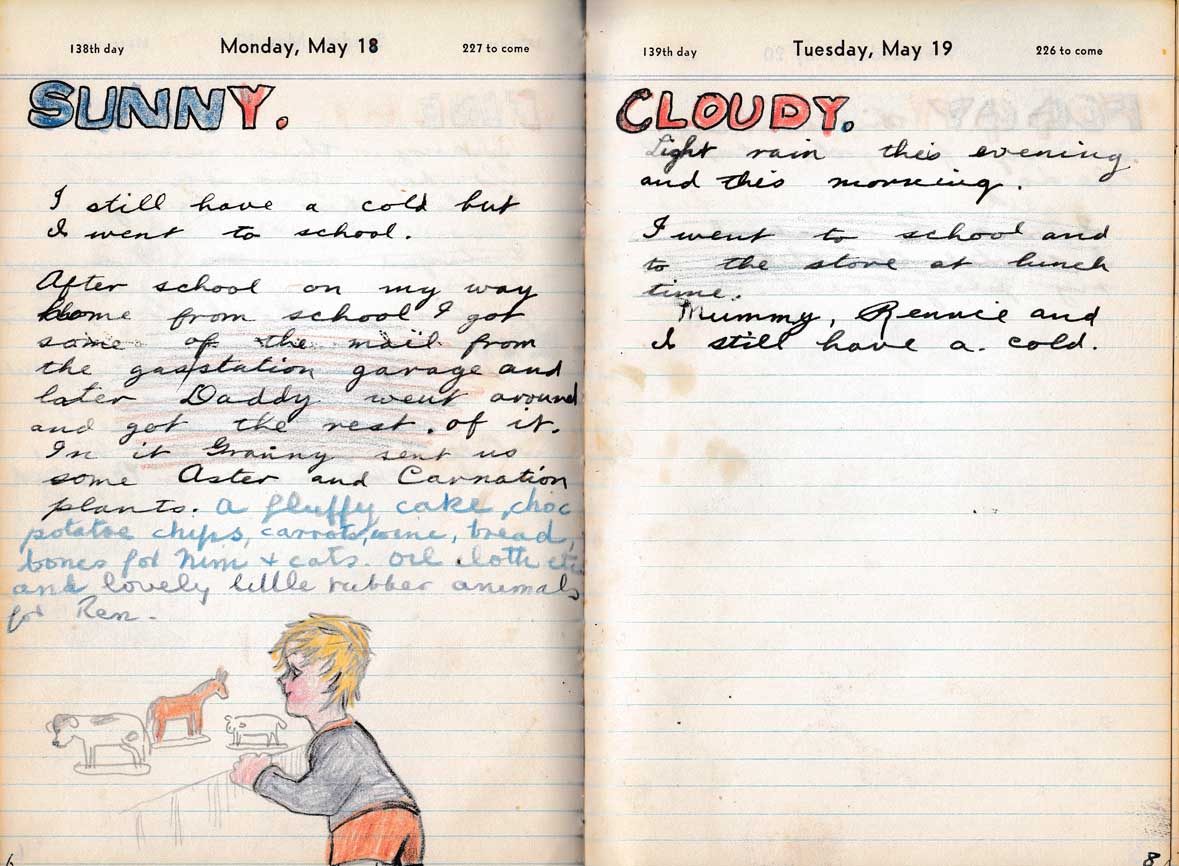 138th day Monday, May 18 227 to come
SUNNY.
I still have a cold but
I went to school.
After school on my way
home from school I got
some of the mail from
the gasstation garage and
later Daddy went around
and got the rest. of it.
In it Granny sent us
some Aster and Carnation
plants. A fluffy cake, choc
potatoe chips, carrots, wine, bread,
bones for Nim + cats. Oil cloth etc
and lovely little rubber animals
for Ren.
6
139th day Tuesday, May 19 226 to come
CLOUDY.
Light rain this evening
and this morning.
I went to school and
to the store at lunch
time.
Mummy, Rennie and
I still have a cold.
8